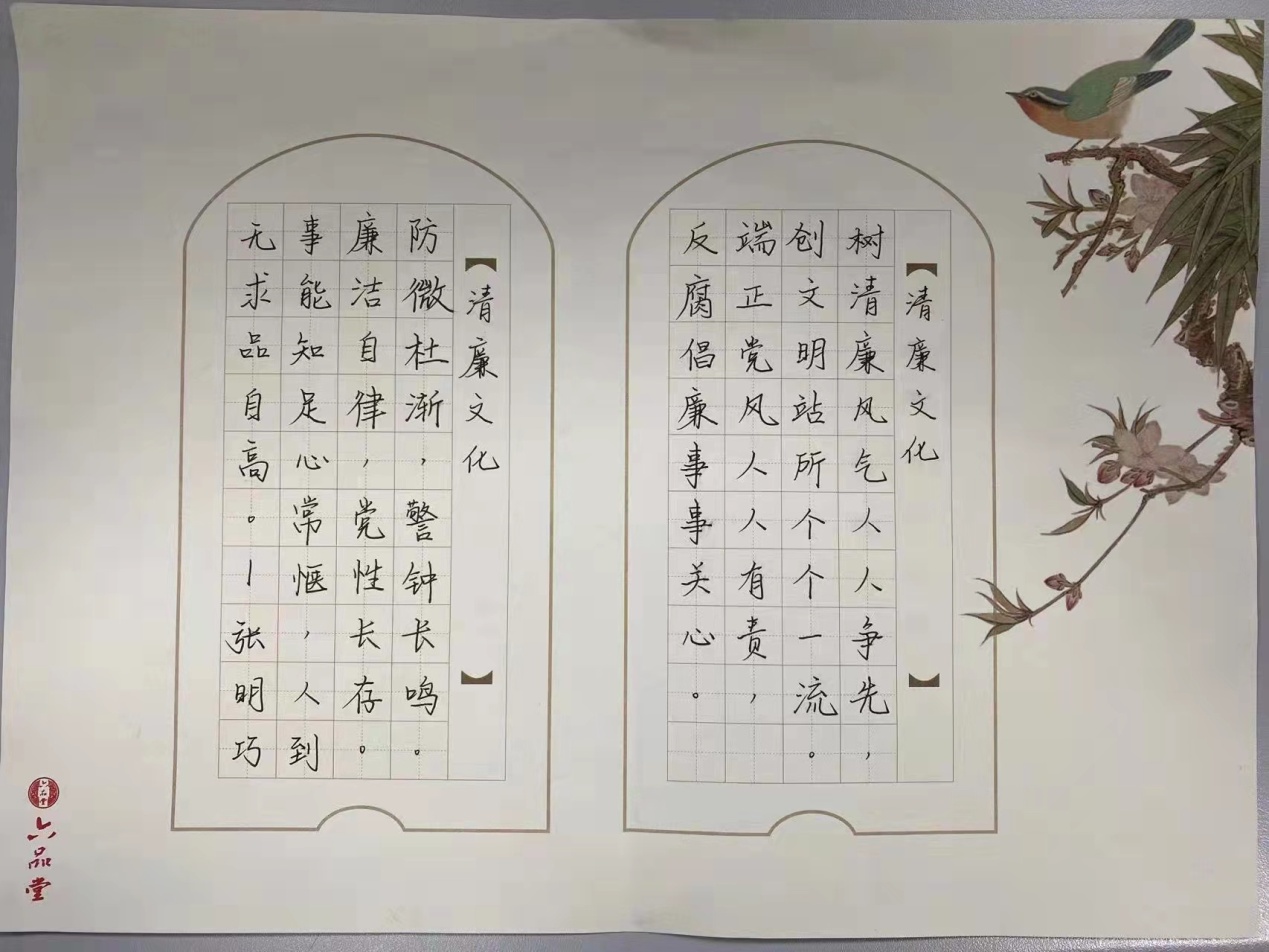 清廉文化
树清廉风气人人争先，
创文明站所个个一流。
端正党风人人有责，
反腐倡廉事事关心。
清廉文化
防微杜渐，警钟长鸣。
廉洁自律，党性长存。
事能知足心常惬，人到
无求品自高。—张明巧
六品堂
六品堂